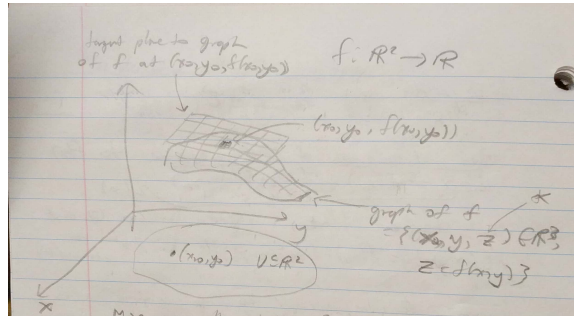 tangent plane to graph
of f at (x₀,y₀,f(x₀,y₀))
f: ℝ² → ℝ
(x₀,y₀, f(x₀,y₀))
graph of f
= {(x, y, z) ∈ ℝ³,
z = f(x,y)}
x
y
•(x₀,y₀) U⊆ℝ²
x